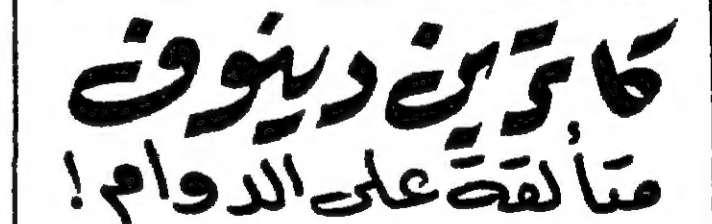 كاترين دينوف
متألقة على الدوام!